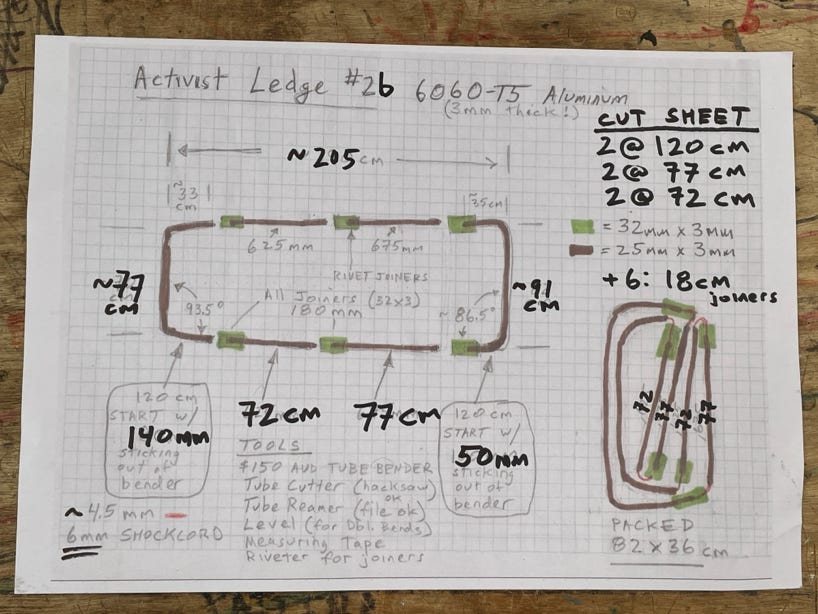 Activist Ledge #2b 6060-T5 Aluminum
(3mm thick!)
CUT SHEET
2 @ 120 cm
2 @ 77 cm
2 @ 72 cm
~205cm
~33 cm
~35cm
= 32mm x 3mm
= 25mm x 3mm
+6: 18cm joiners
625mm
675mm
RIVET JOINERS
~77 cm
~91 cm
All Joiners (32x3)
180mm
93.5°
~86.5°
120 cm
START W/
140mm
sticking
out of
bender
72cm
77cm
120 cm
START W/
50mm
sticking
out of
bender
72
77
72
77
TOOLS
$150 AUD TUBE BENDER
Tube Cutter (hacksaw ok)
Tube Reamer (file ok)
Level (for Dbl. Bends)
Measuring Tape
Riveter for joiners
~4.5mm
6mm SHOCKCORD
PACKED
82 x 36 cm